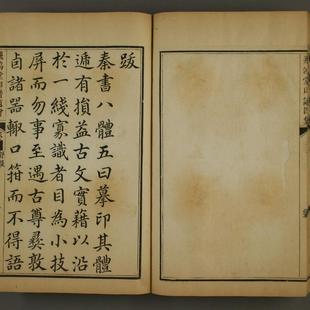 跋
秦書八體五曰摹印其體
遞有損益古文實藉以沿
於一綫寡識者目為小技
屏而勿事至遇古尊彝敦
卣諸器輒口箝而不得語